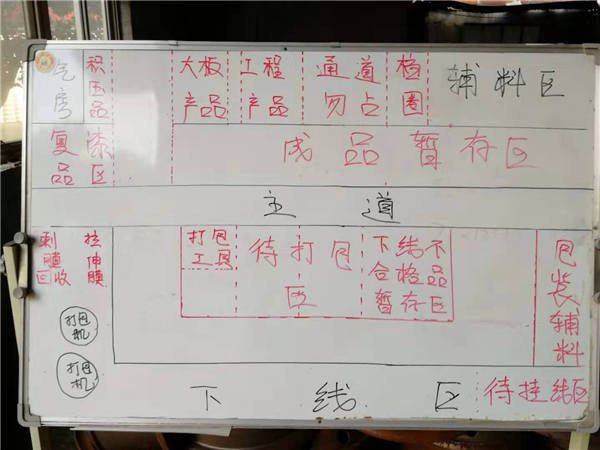 气房
积压品
大板产品
工程产品
通道勿占
档圈
辅料区
复漆品区
成品暂存区
主道
剩膜回收
拉伸膜
打包工具
待打包区
下线不合格品暂存区
包装辅料
打包机
打包机
下线区
待挂线区